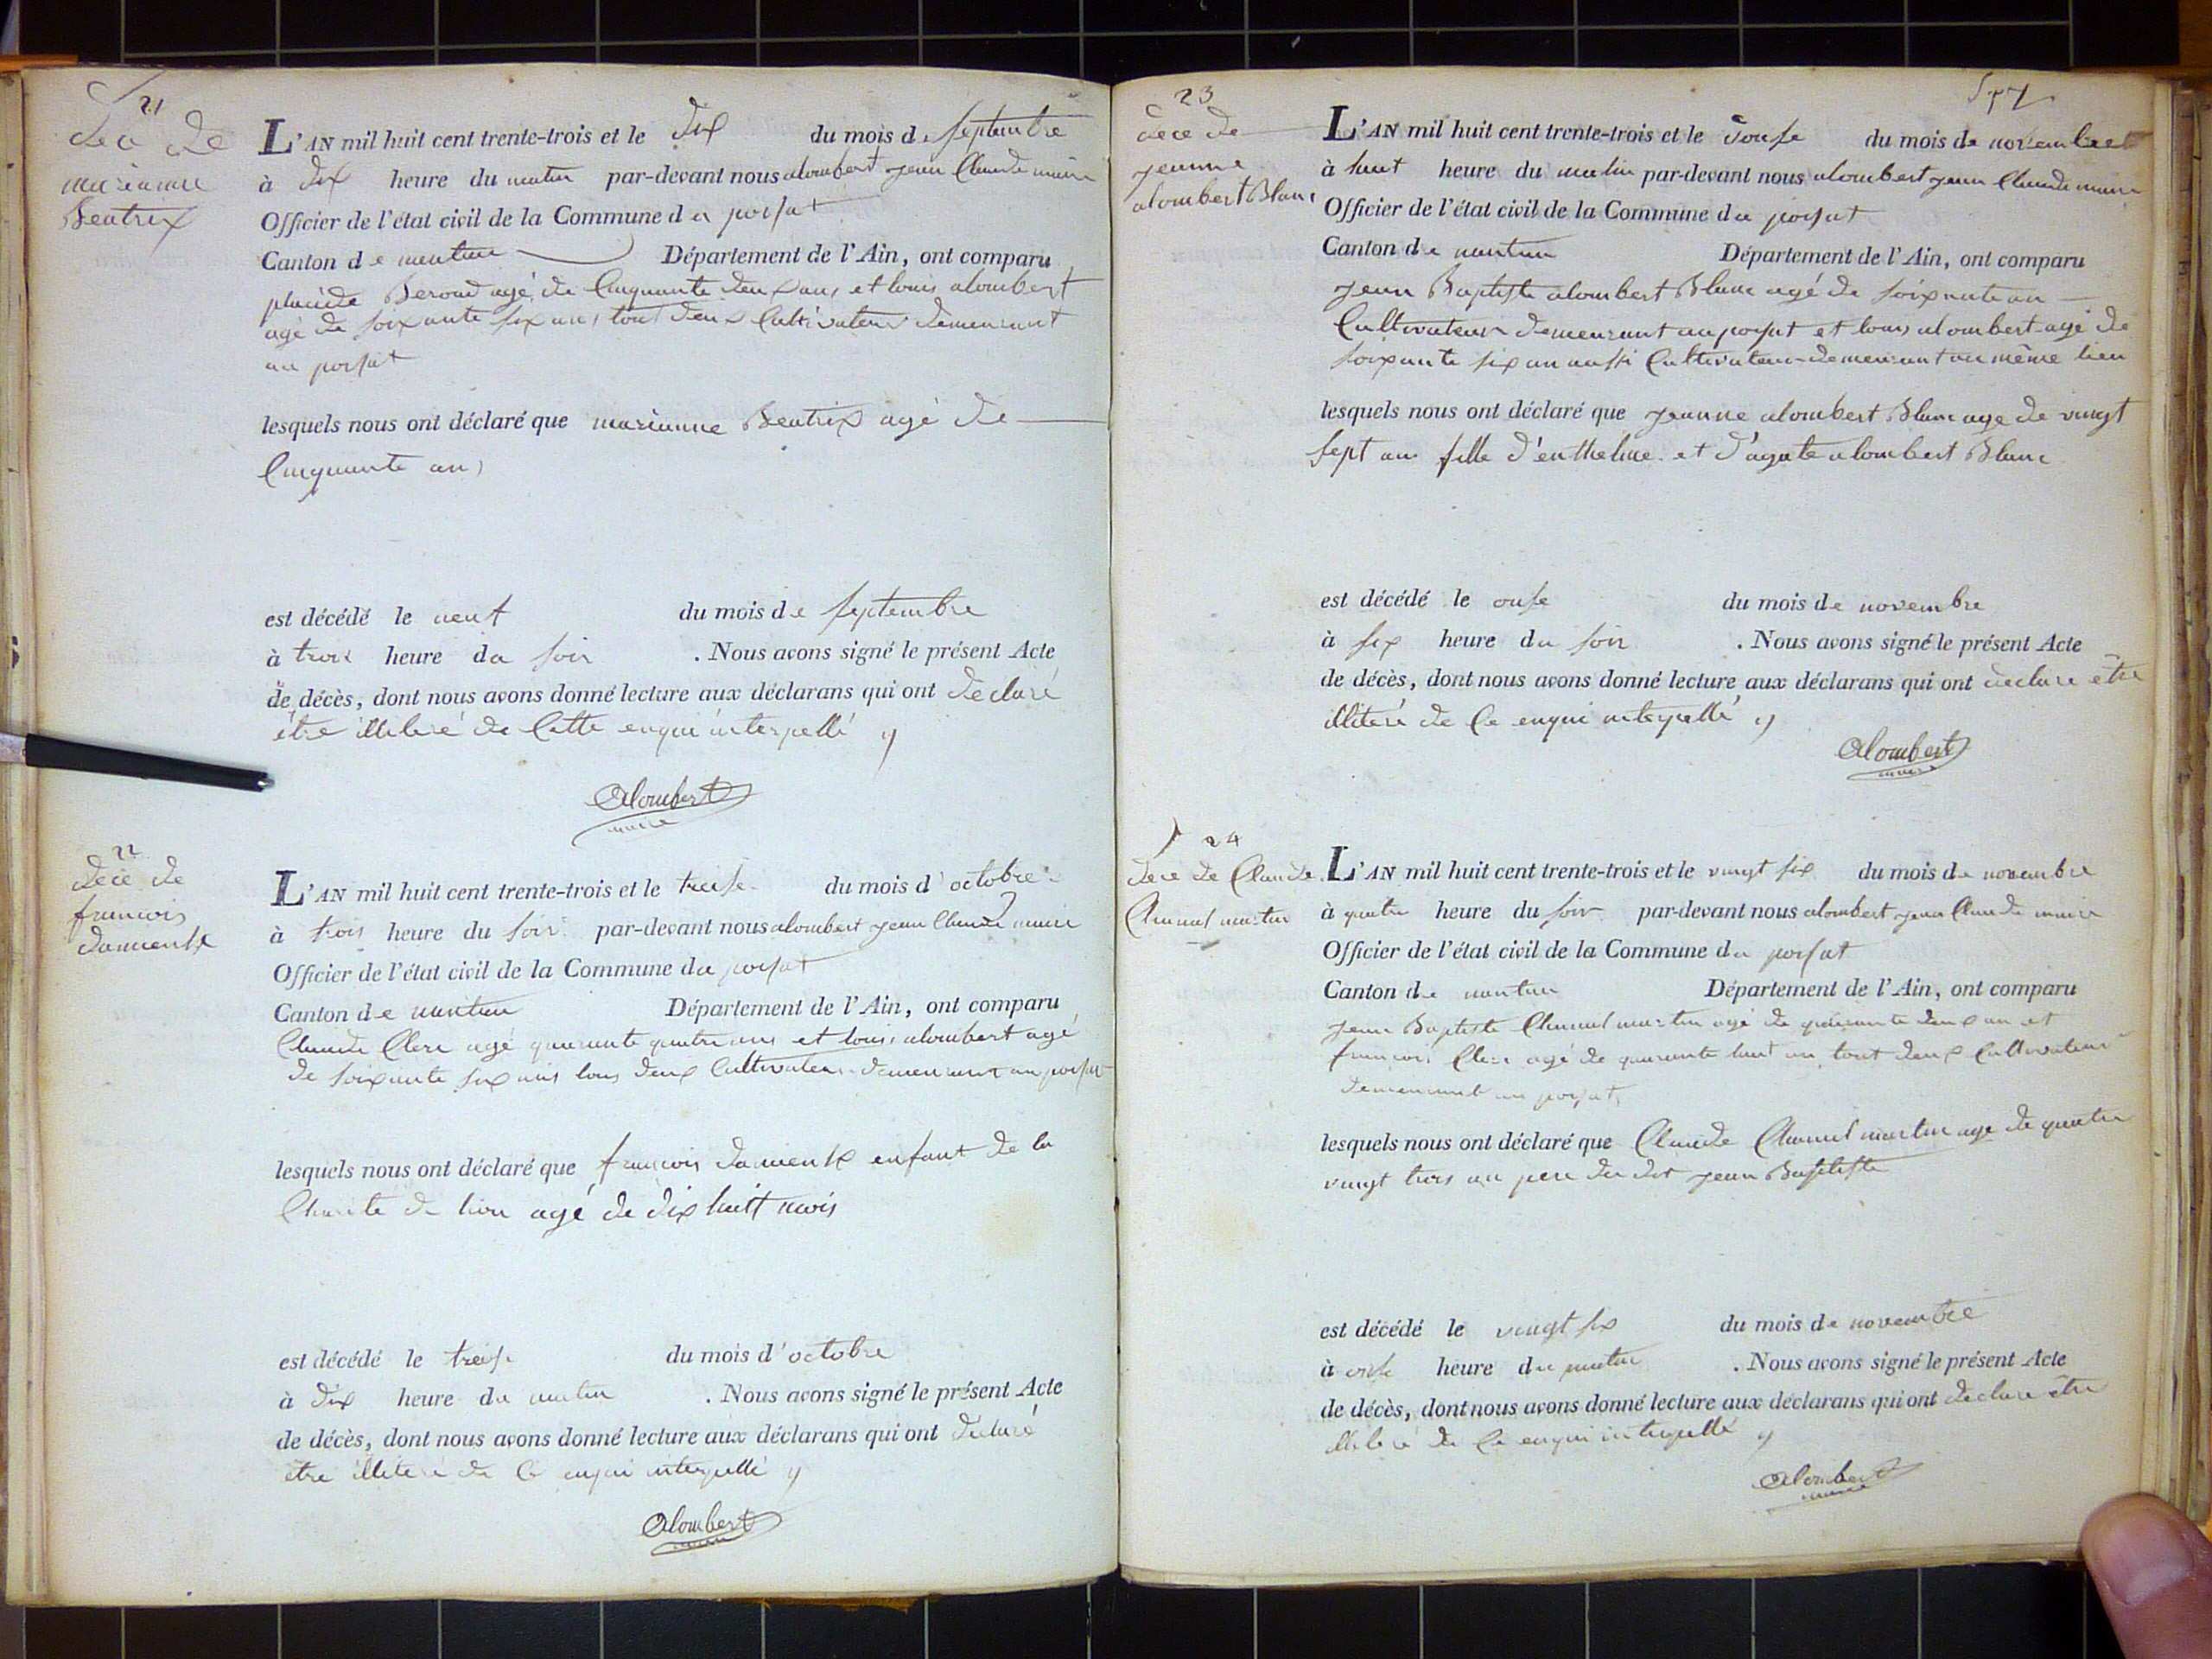 21
dece de
marianne
Beatrix
L'AN mil huit cent trente-trois et le dix du mois de septembre
à dix heure du matin par-devant nous alombert jean Claude maire
Officier de l'état civil de la Commune du poizat
Canton de nantua Département de l'Ain, ont comparu
placide Beroud agé de Cinquante deux ans et louis alombert
agé de soixante six ans tout deux Cultivateur demeurant
au poizat
lesquels nous ont déclaré que marianne Beatrix agé de
Cinquante ans
est décédé le neuf du mois de septembre
à trois heure du soir . Nous avons signé le présent Acte
de décès, dont nous avons donné lecture aux déclarans qui ont declaré
être illiteré de Cette enqui interpellé
Alombert
maire
22
dece de
francois
L'AN mil huit cent trente-trois et le treise du mois d'octobre
à trois heure du soir par-devant nous alombert jean Claude maire
Officier de l'état civil de la Commune du poizat
Canton de nantua Département de l'Ain, ont comparu
Claude Clerc agé quarante quatre ans et louis alombert agé
de soixante six ans tous deux Cultivateur demeurant au poizat
lesquels nous ont déclaré que francois enfant de la
Charite de lion agé de dix huit mois
est décédé le treise du mois d'octobre
à dix heure du matin . Nous avons signé le présent Acte
de décès, dont nous avons donné lecture aux déclarans qui ont declaré
être illiteré de Ce enqui interpellé
Alombert
maire
577
23
dece de
jeanne
alombert Blanc
L'AN mil huit cent trente-trois et le douse du mois de novembre
à huit heure du matin par-devant nous alombert jean Claude maire
Officier de l'état civil de la Commune du poizat
Canton de nantua Département de l'Ain, ont comparu
jean Baptiste alombert Blanc agé de soixante an
Cultivateur demeurant au poizat et louis alombert agé de
soixante six an aussi Cultivateur demeurant au même lieu
lesquels nous ont déclaré que jeanne alombert Blanc age de vingt
sept an fille d'enthelme et d'agate alombert Blanc
est décédé le onse du mois de novembre
à six heure du soir . Nous avons signé le présent Acte
de décès, dont nous avons donné lecture aux déclarans qui ont declare être
illiteré de Ce enqui interpellé
Alombert
maire
24
dece de Claude
Chanel martin
L'AN mil huit cent trente-trois et le vingt six du mois de novembre
à quatre heure du soir par-devant nous alombert jean Claude maire
Officier de l'état civil de la Commune du poizat
Canton de nantua Département de l'Ain, ont comparu
jean Baptiste Chanel martin agé de quarante deux an et
francois Clerc agé de quarante huit an tout deux Cultivateur
demeurant au poizat
lesquels nous ont déclaré que Claude Chanel martin age de quatre
vingt trois an pere du dit jean Baptiste
est décédé le vingt six du mois de novembre
à onse heure du matin . Nous avons signé le présent Acte
de décès, dont nous avons donné lecture aux déclarans qui ont declare être
illiteré de Ce enqui interpellé
Alombert
maire